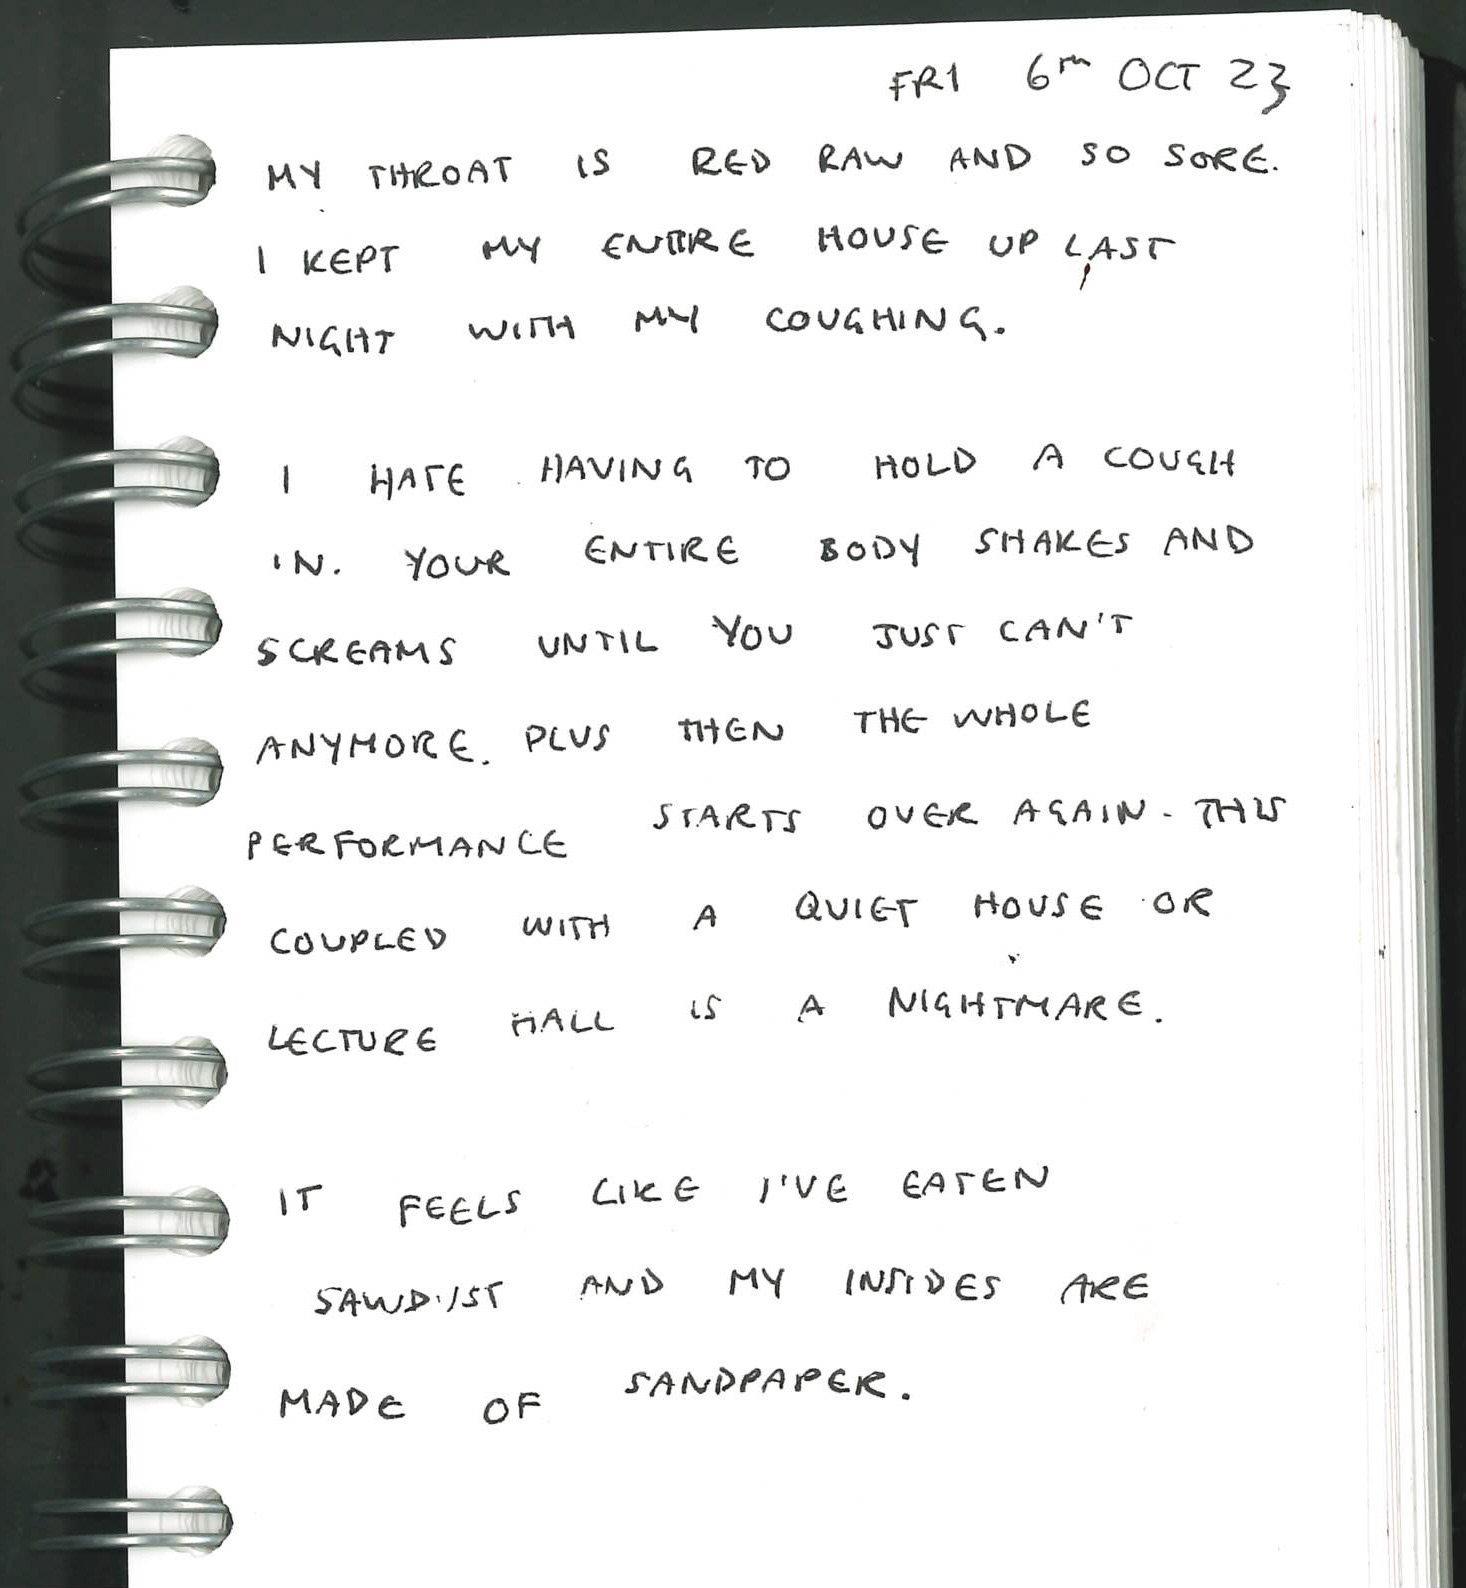 FRI 6TH OCT 23
MY THROAT IS RED RAW AND SO SORE.
I KEPT MY ENTIRE HOUSE UP LAST
NIGHT WITH MY COUGHING.
I HATE HAVING TO HOLD A COUGH
IN. YOUR ENTIRE BODY SHAKES AND
SCREAMS UNTIL YOU JUST CAN'T
ANYMORE. PLUS THEN THE WHOLE
PERFORMANCE STARTS OVER AGAIN. THIS
COUPLED WITH A QUIET HOUSE OR
LECTURE HALL IS A NIGHTMARE.
IT FEELS LIKE I'VE EATEN
SAWDUST AND MY INSIDES ARE
MADE OF SANDPAPER.